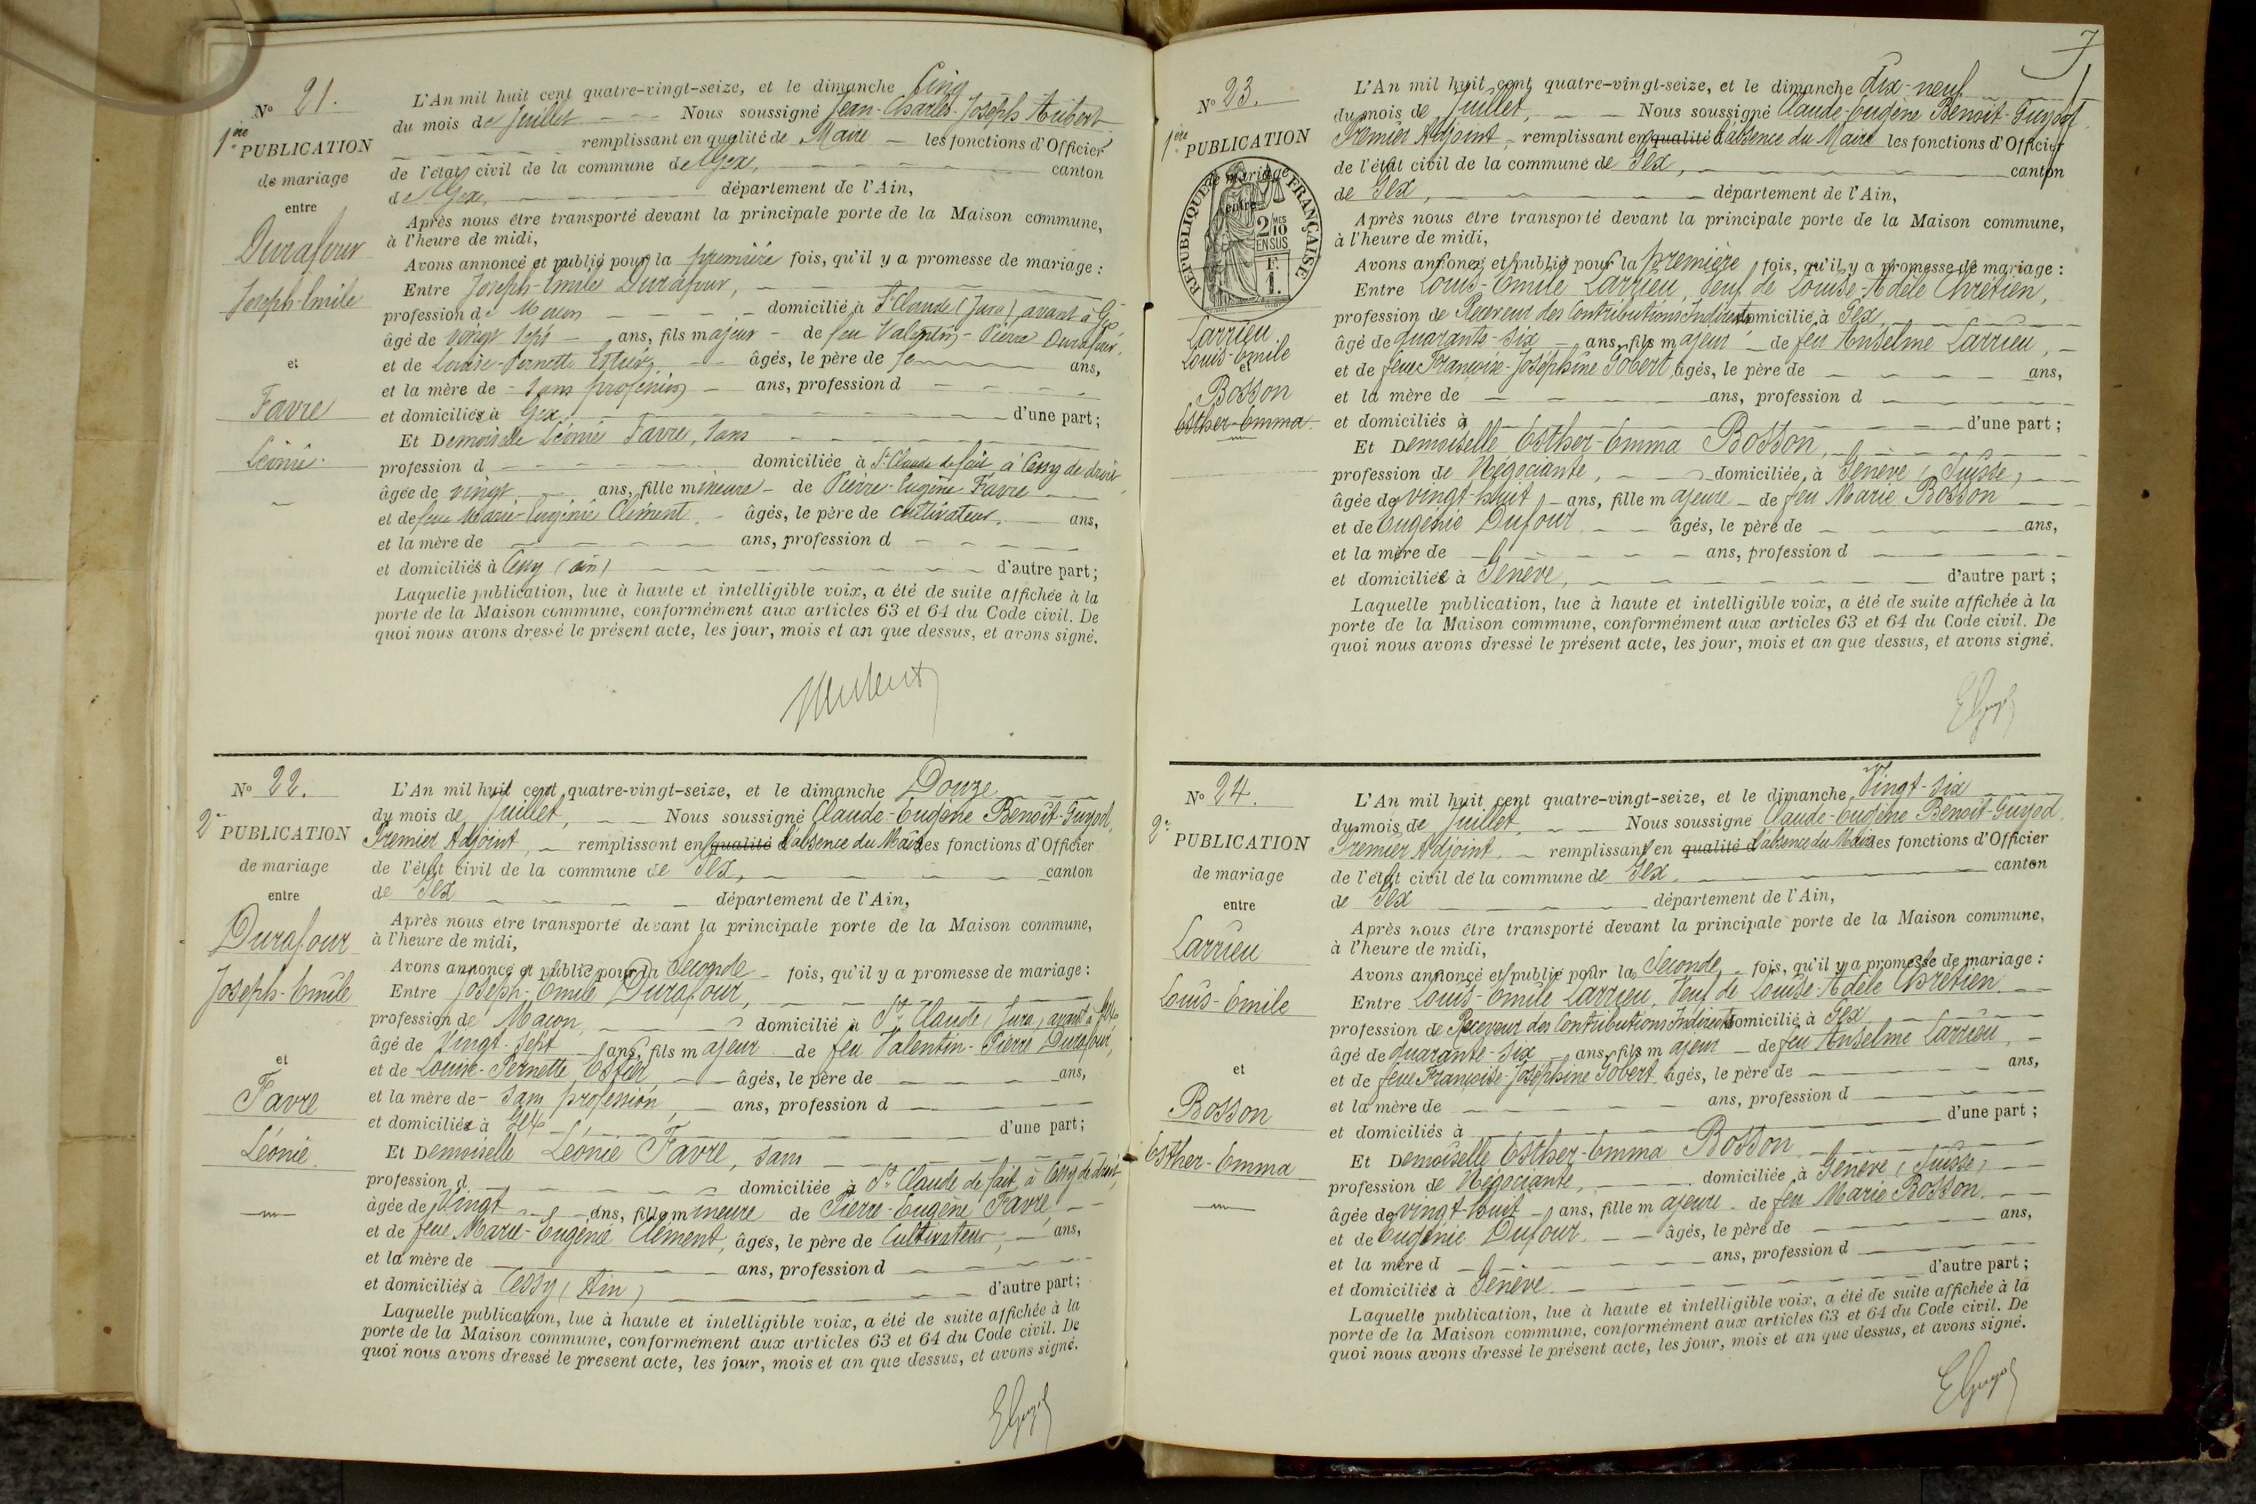 N° 21.
1ère PUBLICATION
de mariage
entre
Durafour
Joseph-Emile
et
Favre
Léonie.
L'An mil huit cent quatre-vingt-seize, et le dimanche Cinq
du mois de Juillet Nous soussigné Jean-Charles-Joseph Hubert
remplissant en qualité de Maire les fonctions d'Officier
de l'état civil de la commune de Gex, canton
de Gex, département de l'Ain,
Après nous être transporté devant la principale porte de la Maison commune,
à l'heure de midi,
Avons annoncé et publié pour la première fois, qu'il y a promesse de mariage :
Entre Joseph-Emile Durafour,
profession de Maçon domicilié à St Claude (Jura) avant à Gex
âgé de vingt sept ans, fils majeur de feu Valentin-Pierre Durafour,
et de Louise-Pernette Estier, âgés, le père de ans,
et la mère de - sans profession ans, profession d
et domiciliés à Gex d'une part ;
Et Demoiselle Léonie Favre, sans
profession d domiciliée à St Claude de fait à Cessy de droit,
âgée de vingt ans, fille mineure de Pierre-Eugène Favre
et de feue Marie-Eugénie Clément, âgés, le père de cultivateur, ans,
et la mère de ans, profession d
et domiciliés à Cessy (Ain) d'autre part ;
Laquelle publication, lue à haute et intelligible voix, a été de suite affichée à la
porte de la Maison commune, conformément aux articles 63 et 64 du Code civil. De
quoi nous avons dressé le présent acte, les jour, mois et an que dessus, et avons signé.
N° 22.
2e PUBLICATION
de mariage
entre
Durafour
Joseph-Emile
et
Favre
Léonie.
L'An mil huit cent quatre-vingt-seize, et le dimanche Douze
du mois de Juillet, Nous soussigné Claude-Eugène Benoit-Guyod,
Premier Adjoint, remplissant en qualité d'absence du Maire les fonctions d'Officier
de l'état civil de la commune de Gex, canton
de Gex département de l'Ain,
Après nous être transporté devant la principale porte de la Maison commune,
à l'heure de midi,
Avons annoncé et publié pour la Seconde fois, qu'il y a promesse de mariage :
Entre Joseph-Emile Durafour,
profession de Maçon, domicilié à St Claude, Jura, avant à Gex
âgé de Vingt-sept ans, fils majeur de feu Valentin-Pierre Durafour,
et de Louise-Pernette Estier, âgés, le père de ans,
et la mère de - sans profession, ans, profession d
et domiciliés à Gex d'une part ;
Et Demoiselle Léonie Favre, sans
profession d domiciliée à St Claude de fait à Cessy de droit,
âgée de Vingt ans, fille mineure de Pierre-Eugène Favre,
et de feue Marie-Eugénie Clément, âgés, le père de Cultivateur, ans,
et la mère de ans, profession d
et domiciliés à Cessy (Ain) d'autre part ;
Laquelle publication, lue à haute et intelligible voix, a été de suite affichée à la
porte de la Maison commune, conformément aux articles 63 et 64 du Code civil. De
quoi nous avons dressé le présent acte, les jour, mois et an que dessus, et avons signé.
E Guyod
7
N° 23.
1ère PUBLICATION
de mariage
entre
RÉPUBLIQUE FRANÇAISE
2 MES 10 EN SUS
1 F.
Larrieu
Louis-Emile
et
Bosson
Esther-Emma
L'An mil huit cent quatre-vingt-seize, et le dimanche dix-neuf
du mois de Juillet, Nous soussigné Claude-Eugène Benoit-Guyod
Premier Adjoint, remplissant en qualité d'absence du Maire les fonctions d'Officier
de l'état civil de la commune de Gex, canton
de Gex, département de l'Ain,
Après nous être transporté devant la principale porte de la Maison commune,
à l'heure de midi,
Avons annoncé et publié pour la première fois, qu'il y a promesse de mariage :
Entre Louis-Emile Larrieu, Veuf de Louise-Adèle Chrétien,
profession de Receveur des Contributions Indirectes domicilié à Gex
âgé de quarante-six ans, fils majeur de feu Anselme Larrieu,
et de feue Françoise-Joséphine Gobert, âgés, le père de ans,
et la mère de ans, profession d
et domiciliés à d'une part ;
Et Demoiselle Esther-Emma Bosson,
profession de Négociante, domiciliée à Genève, Suisse,
âgée de vingt-huit ans, fille majeure de feu Marie Bosson
et de Eugénie Dufour âgés, le père de ans,
et la mère de ans, profession d
et domiciliés à Genève, d'autre part ;
Laquelle publication, lue à haute et intelligible voix, a été de suite affichée à la
porte de la Maison commune, conformément aux articles 63 et 64 du Code civil. De
quoi nous avons dressé le présent acte, les jour, mois et an que dessus, et avons signé.
E Guyod
N° 24.
2e PUBLICATION
de mariage
entre
Larrieu
Louis-Emile
et
Bosson
Esther-Emma
L'An mil huit cent quatre-vingt-seize, et le dimanche Vingt-six
du mois de Juillet, Nous soussigné Claude-Eugène Benoit-Guyod,
Premier Adjoint, remplissant en qualité d'absence du Maire les fonctions d'Officier
de l'état civil de la commune de Gex canton
de Gex département de l'Ain,
Après nous être transporté devant la principale porte de la Maison commune,
à l'heure de midi,
Avons annoncé et publié pour la Seconde fois, qu'il y a promesse de mariage :
Entre Louis-Emile Larrieu, Veuf de Louise-Adèle Chrétien.
profession de Receveur des Contributions Indirectes domicilié à Gex
âgé de quarante-six ans, fils majeur de feu Anselme Larrieu,
et de feue Françoise-Joséphine Gobert âgés, le père de ans,
et la mère de ans, profession d
et domiciliés à d'une part ;
Et Demoiselle Esther-Emma Bosson
profession de Négociante, domiciliée à Genève, Suisse,
âgée de vingt-huit ans, fille majeure de feu Marie Bosson.
et de Eugénie Dufour âgés, le père de ans,
et la mère d ans, profession d
et domiciliés à Genève d'autre part ;
Laquelle publication, lue à haute et intelligible voix, a été de suite affichée à la
porte de la Maison commune, conformément aux articles 63 et 64 du Code civil. De
quoi nous avons dressé le présent acte, les jour, mois et an que dessus, et avons signé.
E Guyod